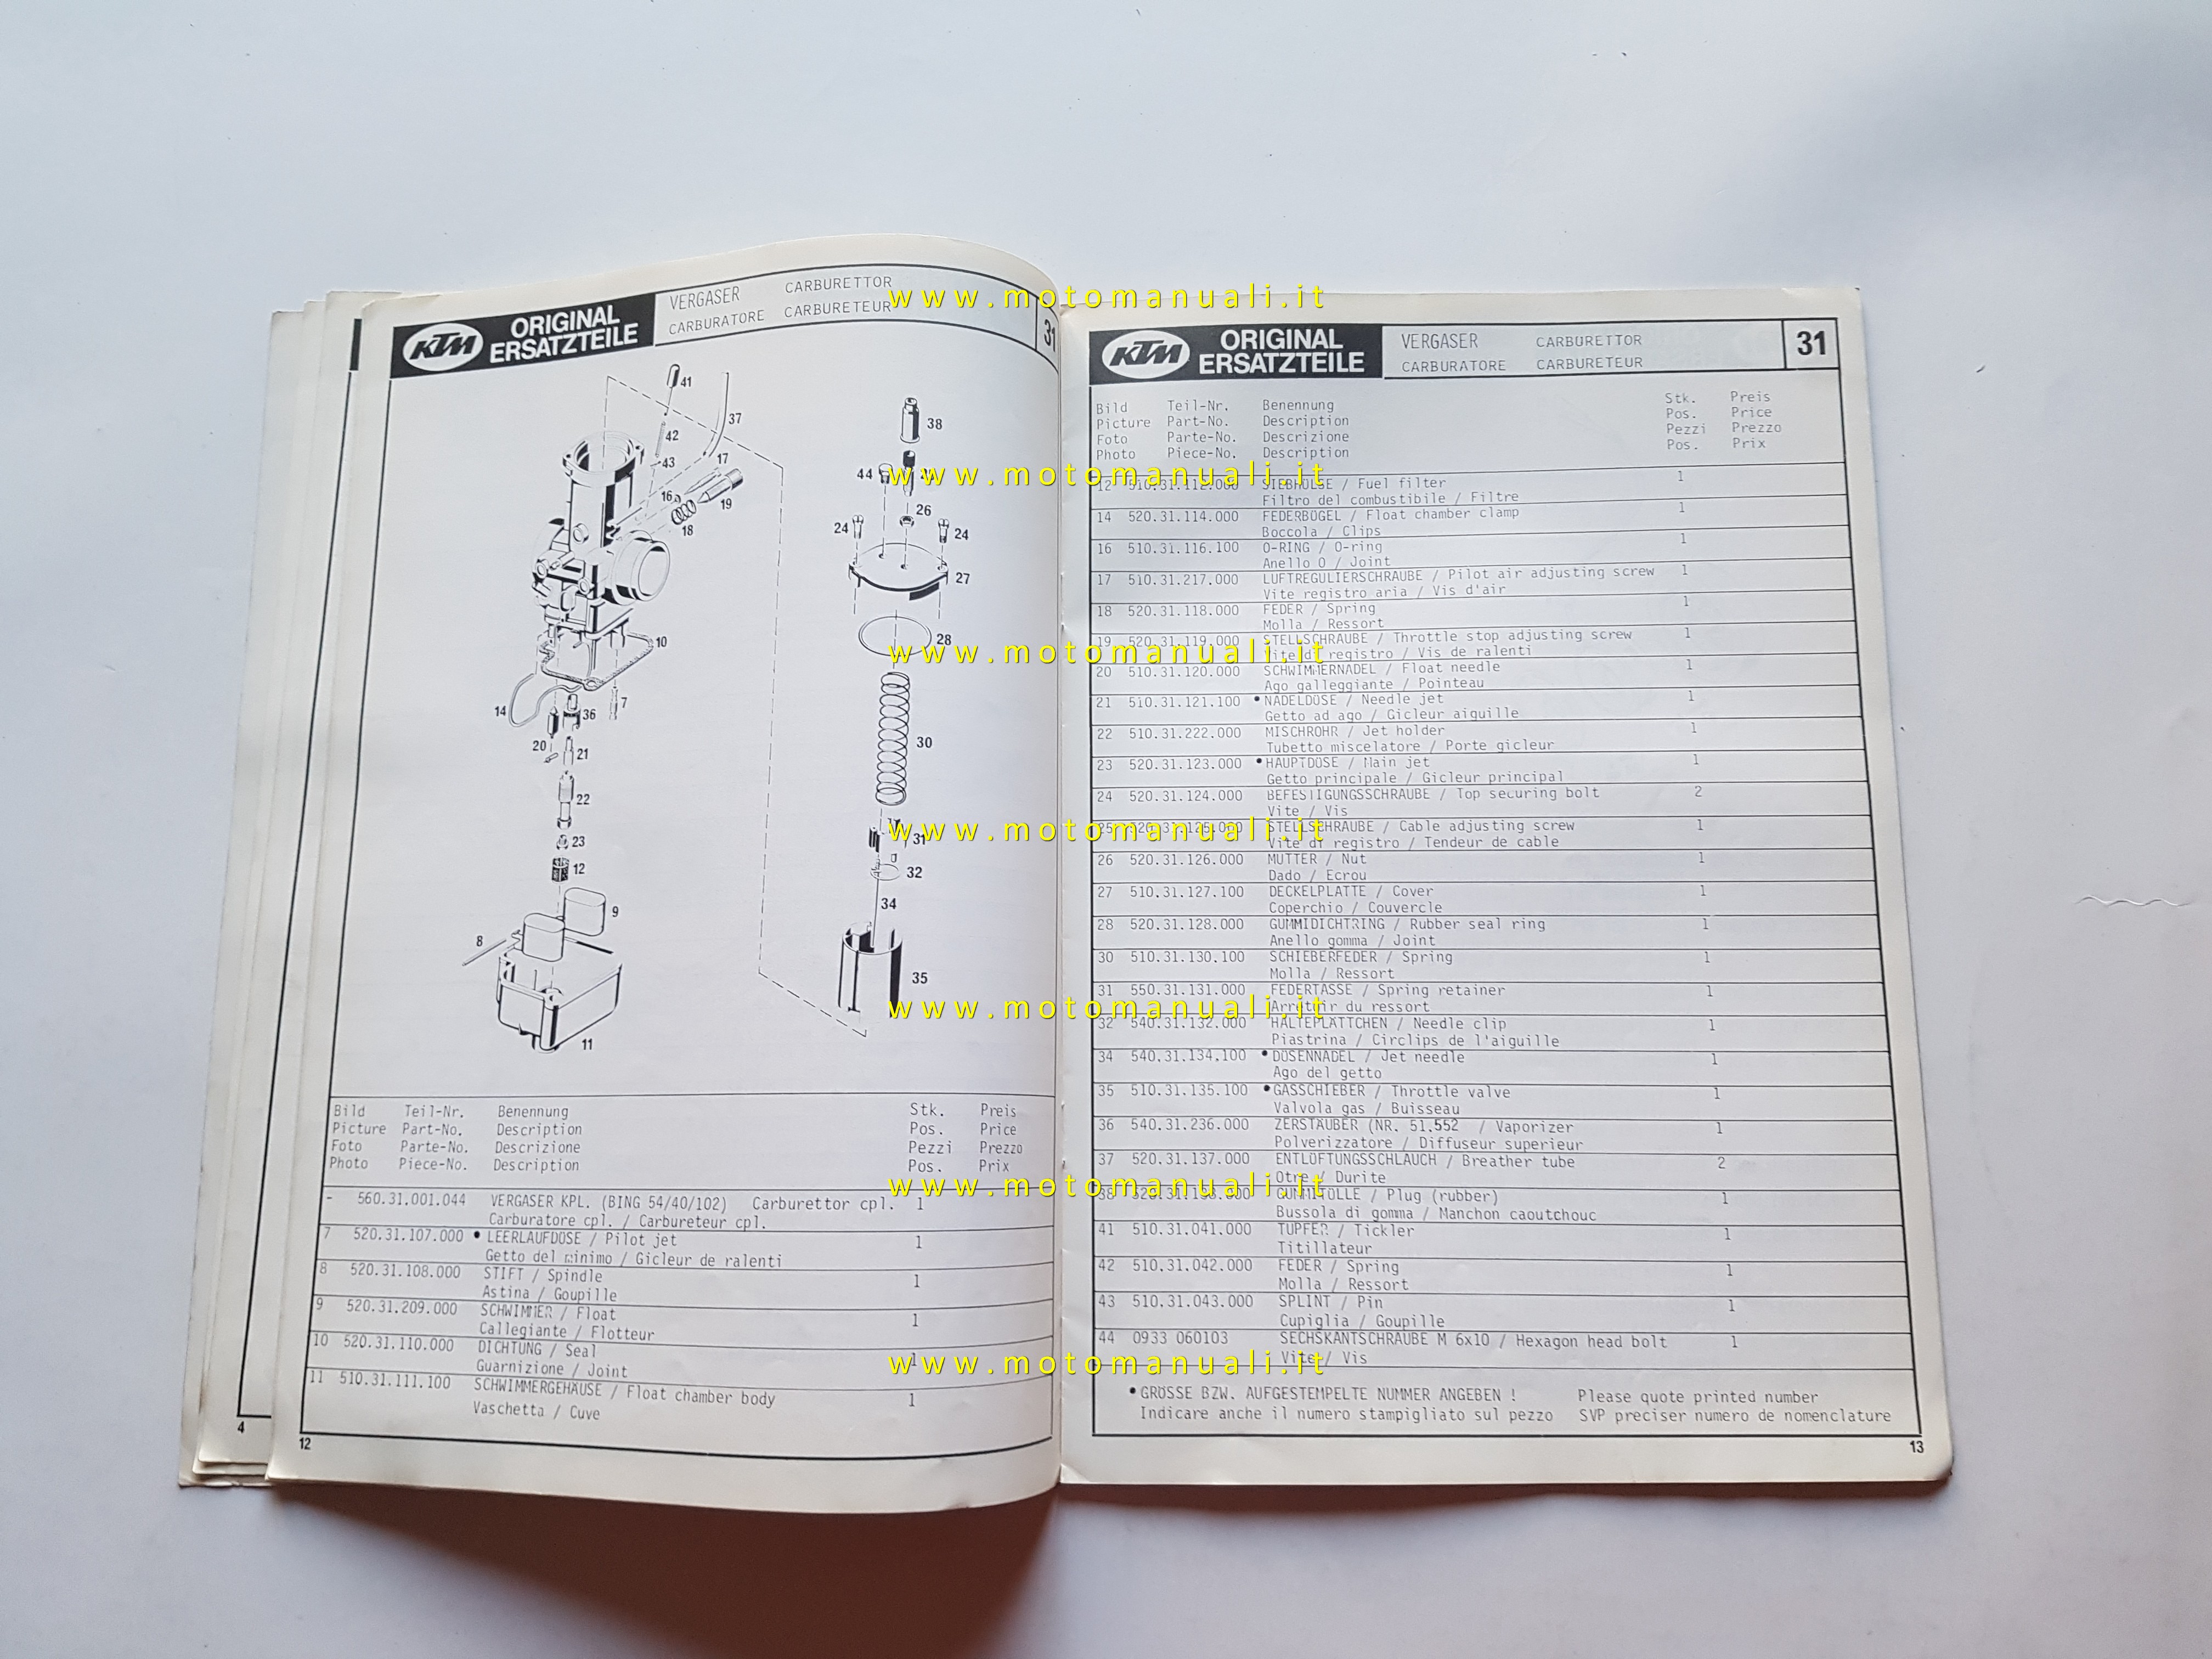 KTM ORIGINAL
ERSATZTEILE
VERGASER CARBURETTOR
CARBURATORE CARBURETEUR
31
41
37
42
43
17
16
19
18
10
14
36
7
20
21
22
23
12
9
8
11
38
44
26
24
24
27
28
30
31
32
34
35
Bild Teil-Nr. Benennung Stk. Preis
Picture Part-No. Description Pos. Price
Foto Parte-No. Descrizione Pezzi Prezzo
Photo Piece-No. Description Pos. Prix
- 560.31.001.044 VERGASER KPL. (BING 54/40/102) Carburettor cpl. 1
Carburatore cpl. / Carbureteur cpl.
7 520.31.107.000 • LEERLAUFDÜSE / Pilot jet 1
Getto del minimo / Gicleur de ralenti
8 520.31.108.000 STIFT / Spindle 1
Astina / Goupille
9 520.31.209.000 SCHWIMMER / Float 1
Callegiante / Flotteur
10 520.31.110.000 DICHTUNG / Seal 1
Guarnizione / Joint
11 510.31.111.100 SCHWIMMERGEHÄUSE / Float chamber body 1
Vaschetta / Cuve
4
12
KTM ORIGINAL
ERSATZTEILE
VERGASER CARBURETTOR
CARBURATORE CARBURETEUR
31
Bild Teil-Nr. Benennung Stk. Preis
Picture Part-No. Description Pos. Price
Foto Parte-No. Descrizione Pezzi Prezzo
Photo Piece-No. Description Pos. Prix
12 510.31.112.000 SIEBHÜLSE / Fuel filter 1
Filtro del combustibile / Filtre
14 520.31.114.000 FEDERBÜGEL / Float chamber clamp 1
Boccola / Clips
16 510.31.116.100 O-RING / O-ring 1
Anello O / Joint
17 510.31.217.000 LUFTREGULIERSCHRAUBE / Pilot air adjusting screw 1
Vite registro aria / Vis d'air
18 520.31.118.000 FEDER / Spring 1
Molla / Ressort
19 520.31.119.000 STELLSCHRAUBE / Throttle stop adjusting screw 1
Vite di registro / Vis de ralenti
20 510.31.120.000 SCHWIMMERNADEL / Float needle 1
Ago galleggiante / Pointeau
21 510.31.121.100 • NADELDÜSE / Needle jet 1
Getto ad ago / Gicleur aiguille
22 510.31.222.000 MISCHROHR / Jet holder 1
Tubetto miscelatore / Porte gicleur
23 520.31.123.000 • HAUPTDÜSE / Main jet 1
Getto principale / Gicleur principal
24 520.31.124.000 BEFESTIGUNGSSCHRAUBE / Top securing bolt 2
Vite / Vis
25 520.31.125.000 STELLSCHRAUBE / Cable adjusting screw 1
Vite di registro / Tendeur de cable
26 520.31.126.000 MUTTER / Nut 1
Dado / Ecrou
27 510.31.127.100 DECKELPLATTE / Cover 1
Coperchio / Couvercle
28 520.31.128.000 GUMMIDICHTRING / Rubber seal ring 1
Anello gomma / Joint
30 510.31.130.100 SCHIEBERFEDER / Spring 1
Molla / Ressort
31 550.31.131.000 FEDERTASSE / Spring retainer 1
du ressort
32 540.31.132.000 HALTEPLÄTTCHEN / Needle clip 1
Piastrina / Circlips de l'aiguille
34 540.31.134.100 • DÜSENNADEL / Jet needle 1
Ago del getto
35 510.31.135.100 • GASSCHIEBER / Throttle valve 1
Valvola gas / Buisseau
36 540.31.236.000 ZERSTÄUBER (NR. 51.552 / Vaporizer 1
Polverizzatore / Diffuseur superieur
37 520.31.137.000 ENTLÜFTUNGSSCHLAUCH / Breather tube 2
Otre / Durite
38 520.31.138.000 GUMMITÜLLE / Plug (rubber) 1
Bussola di gomma / Manchon caoutchouc
41 510.31.041.000 TUPFER / Tickler 1
Titillateur
42 510.31.042.000 FEDER / Spring 1
Molla / Ressort
43 510.31.043.000 SPLINT / Pin 1
Cupiglia / Goupille
44 0933 060103 SECHSKANTSCHRAUBE M 6x10 / Hexagon head bolt 1
Vite / Vis
• GRÖSSE BZW. AUFGESTEMPELTE NUMMER ANGEBEN ! Please quote printed number
Indicare anche il numero stampigliato sul pezzo SVP preciser numero de nomenclature
13
www.motomanuali.it
www.motomanuali.it
www.motomanuali.it
www.motomanuali.it
www.motomanuali.it
www.motomanuali.it
www.motomanuali.it